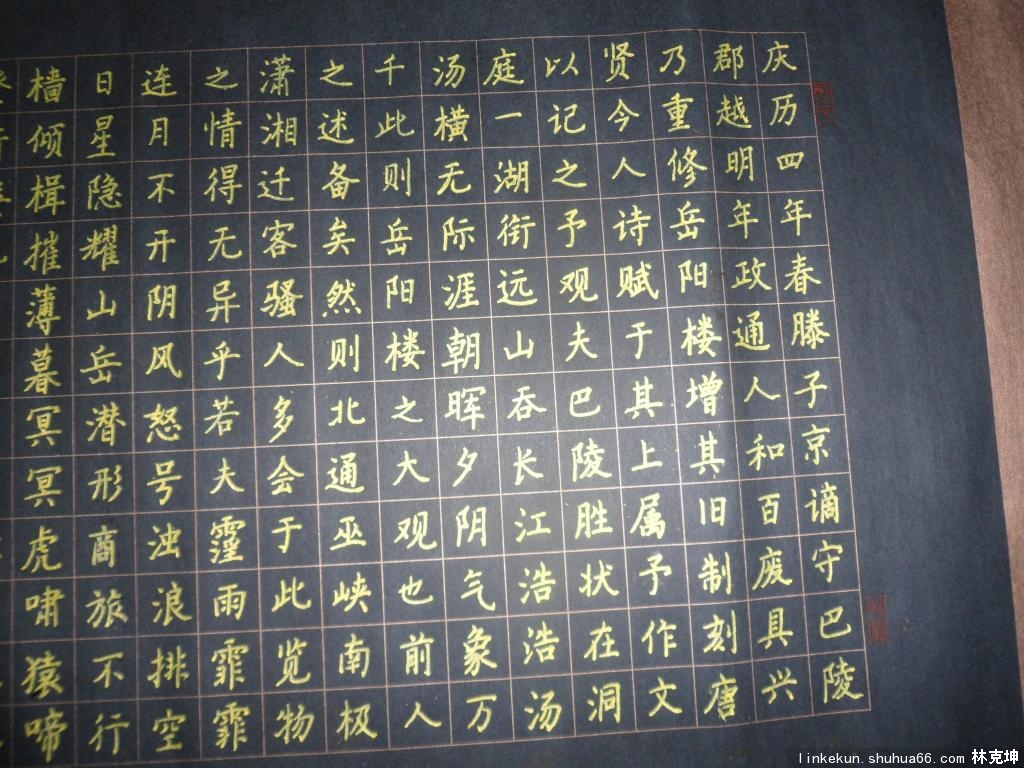 庆历四年春滕子京谪守巴陵
郡越明年政通人和百废具兴
乃重修岳阳楼增其旧制刻唐
贤今人诗赋于其上属予作文
以记之予观夫巴陵胜状在洞
庭一湖衔远山吞长江浩浩汤
汤横无际涯朝晖夕阴气象万
千此则岳阳楼之大观也前人
之述备矣然则北通巫峡南极
潇湘迁客骚人多会于此览物
之情得无异乎若夫霪雨霏霏
连月不开阴风怒号浊浪排空
日星隐耀山岳潜形商旅不行
樯倾楫摧薄暮冥冥虎啸猿啼
linkekun.shuhua66.com 林克坤